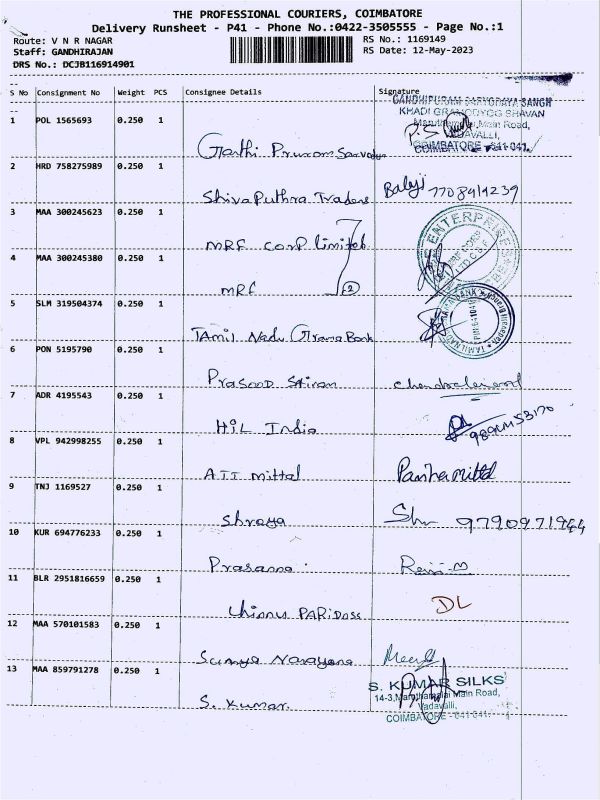 THE PROFESSIONAL COURIERS, COIMBATORE
Delivery Runsheet - P41 - Phone No.:0422-3505555 - Page No.:1
Route: V N R NAGAR RS No.: 1169149
Staff: GANDHIRAJAN RS Date: 12-May-2023
DRS No.: DCJB116914901
S No Consignment No Weight PCS Consignee Details Signature
GANDHIPURAM SARVODAYA SANGH
KHADI GRAMODYOG BHAVAN
1 POL 1565693 0.250 1
Main Road,
VADAVALLI,
COIMBATORE - 641 041.
2 HRD 758275989 0.250 1
Shiva Puthra Traders Balaji 7708414239
3 MAA 300245623 0.250 1
MRF Corp limited
ENTERPRISES
4 MAA 300245380 0.250 1
MRF 2
5 SLM 319504374 0.250 1
Tamil Nadu Grama Bank
6 PON 5195790 0.250 1
Prasood Sairam
7 ADR 4195543 0.250 1
HiL India
8 VPL 942998255 0.250 1
AJJ mittal
9 TNJ 1169527 0.250 1
Shreya 9790971944
10 KUR 694776233 0.250 1
Prasanna
11 BLR 2951816659 0.250 1
Chinnu PARiDoss DL
12 MAA 570101583 0.250 1
Surya Narayana
13 MAA 859791278 0.250 1
S. KUMAR SILKS
14-3, Maruthamalai Main Road,
Vadavalli,
S. Kumar. COIMBATORE - 641 041.